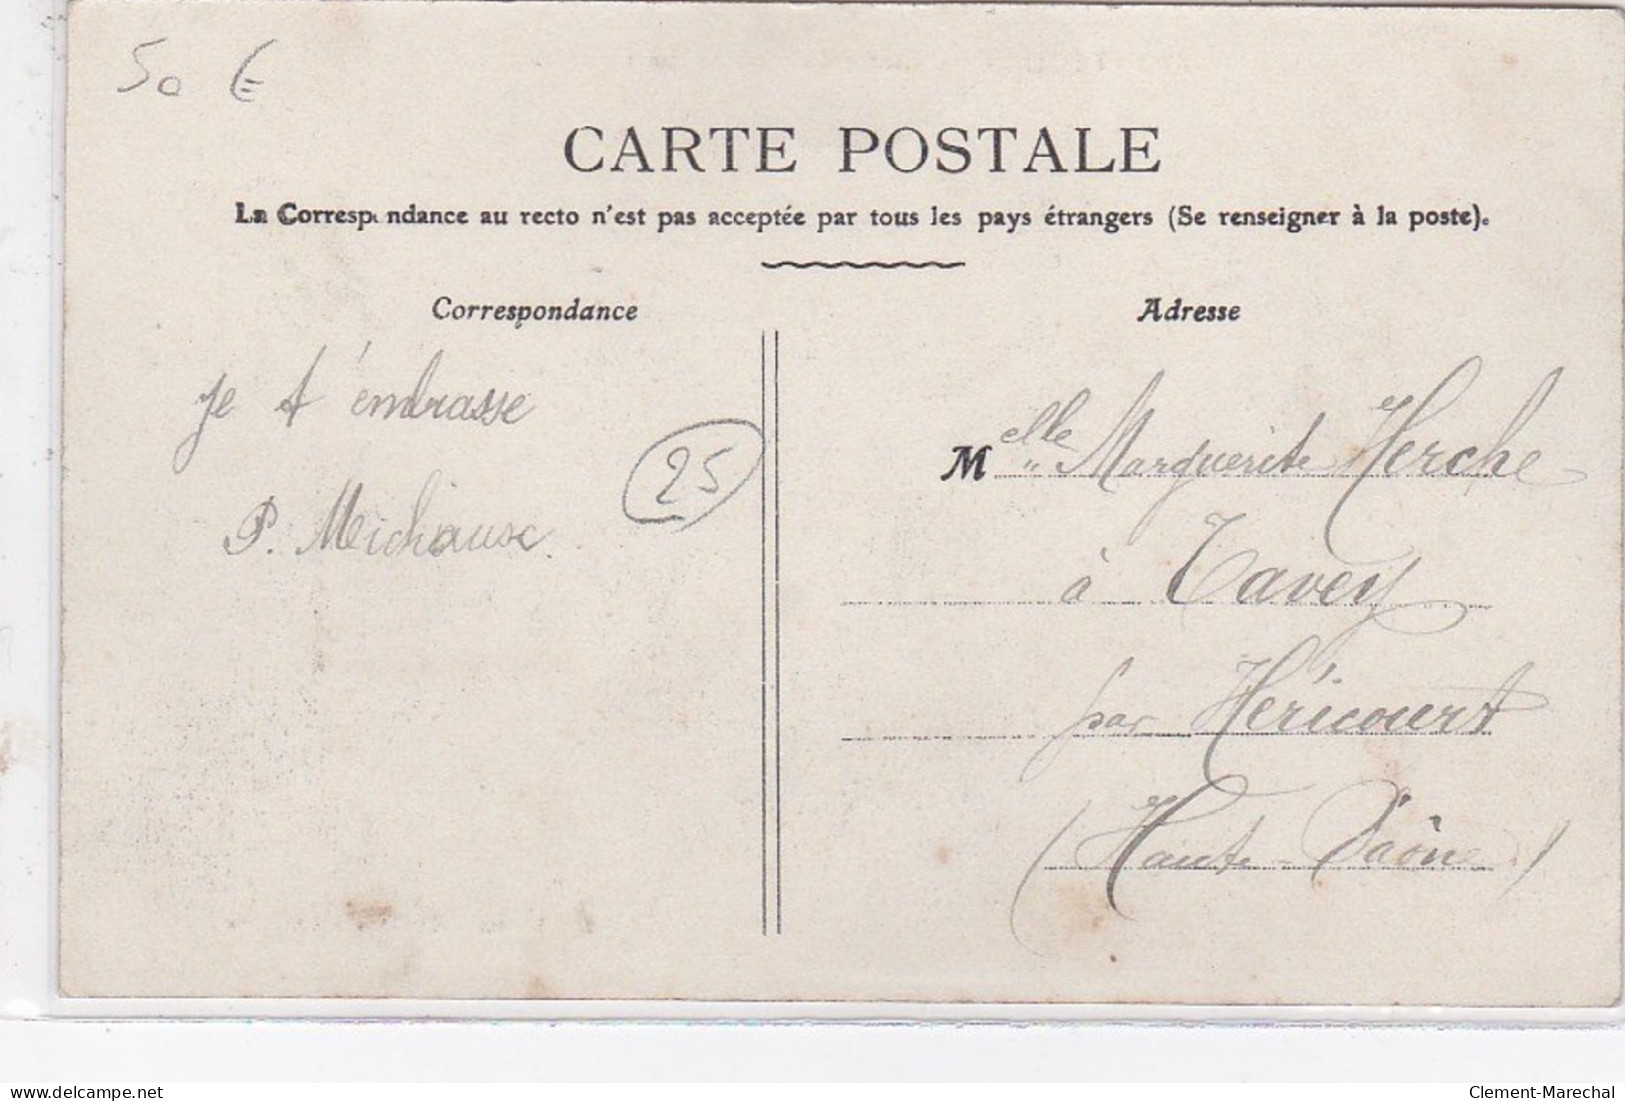 50 €
CARTE POSTALE
La Correspondance au recto n'est pas acceptée par tous les pays étrangers (Se renseigner à la poste).
Correspondance
je t'embrasse
P. Michaux
25
Adresse
Melle Marguerite Herche
à Tavey
par Héricourt
(Haute-Saône)
www.delcampe.net
Clement-Marechal